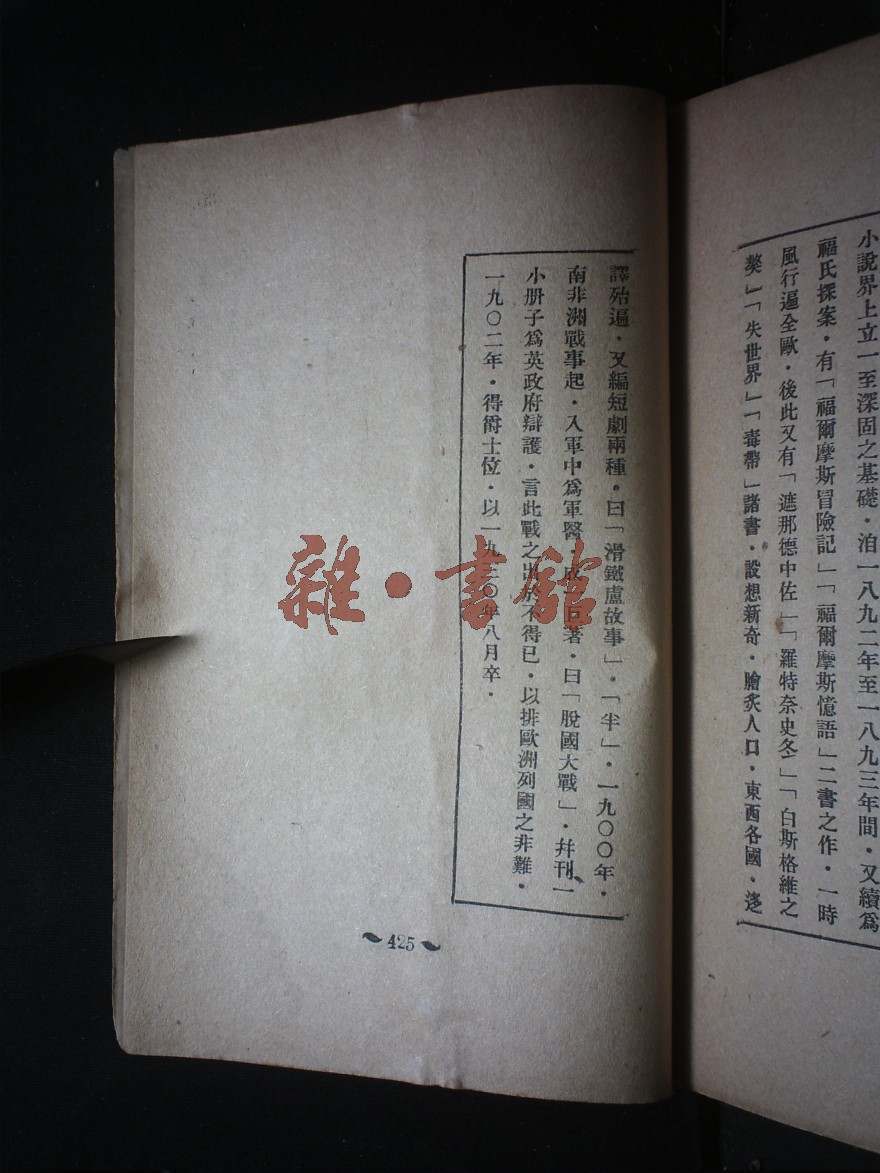 小說界上立一至深固之基礎·洎一八九二年至一八九三年間·又續爲
福氏探案·有「福爾摩斯冒險記」「福爾摩斯憶語」二書之作·一時
風行遍全歐·後此又有「遮那德中佐」「羅特奈史冬」「白斯格維之
獒」「失世界」「毒帶」諸書·設想新奇·膾炙人口·東西各國·迻
譯殆遍·又編短劇兩種·曰「滑鐵盧故事」·「半」·一九〇〇年·
南非洲戰事起·入軍中爲軍醫·成一巨著·曰「脫國大戰」·幷刊一
小册子爲英政府辯護·言此戰之出於不得已·以排歐洲列國之非難·
一九〇二年·得爵士位·以一九三〇年八月卒·
425
雜·書館